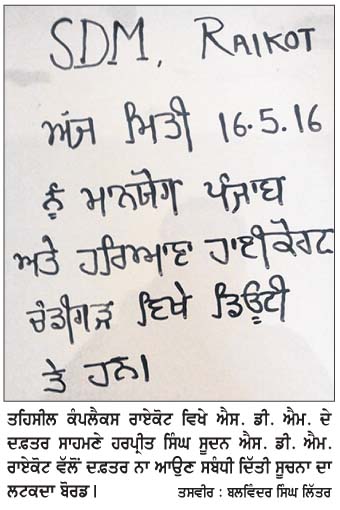 SDM, RAIKOT
ਅੱਜ ਮਿਤੀ 16.5.16
ਨੂੰ ਮਾਨਯੋਗ ਪੰਜਾਬ
ਅਤੇ ਹਰਿਆਣਾ ਹਾਈਕੋਰਟ
ਚੰਡੀਗੜ ਵਿਖੇ ਡਿਊਟੀ
ਤੇ ਹਨ।
ਤਹਿਸੀਲ ਕੰਪਲੈਕਸ ਰਾਏਕੋਟ ਵਿਖੇ ਐਸ. ਡੀ. ਐਮ. ਦੇ
ਦਫ਼ਤਰ ਸਾਹਮਣੇ ਹਰਪ੍ਰੀਤ ਸਿੰਘ ਸੂਦਨ ਐਸ. ਡੀ. ਐਮ.
ਰਾਏਕੋਟ ਵੱਲੋਂ ਦਫ਼ਤਰ ਨਾ ਆਉਣ ਸਬੰਧੀ ਦਿੱਤੀ ਸੂਚਨਾ ਦਾ
ਲਟਕਦਾ ਬੋਰਡ। ਤਸਵੀਰ : ਬਲਵਿੰਦਰ ਸਿੰਘ ਲਿੱਤਰ